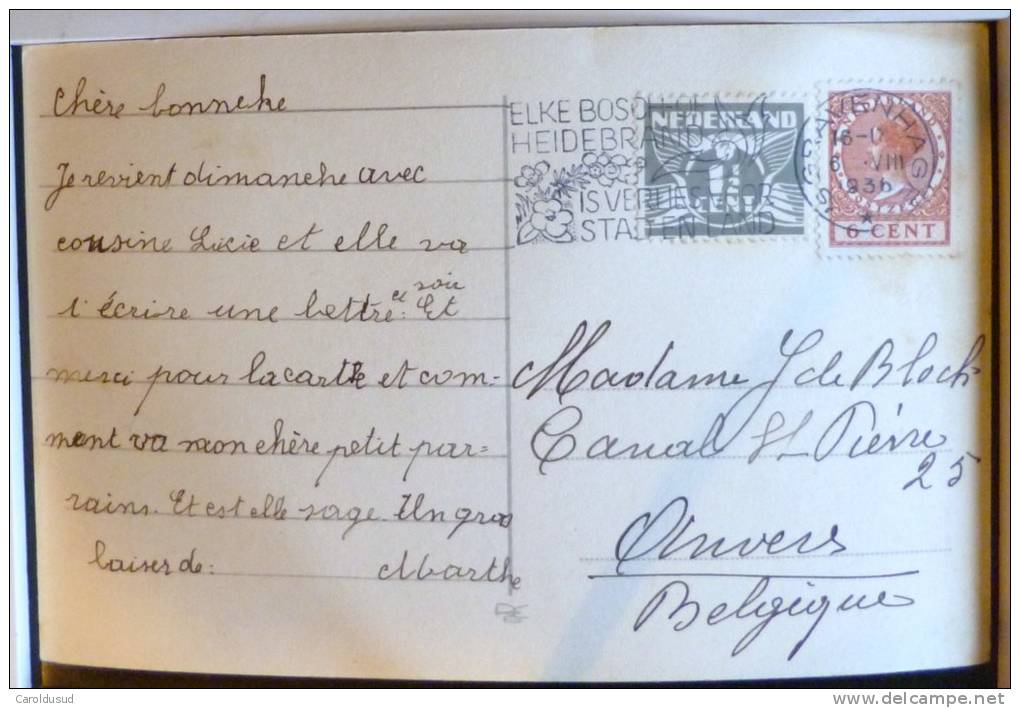 Chère bonneke
Je revient dimanche avec
cousine Lucie et elle va
t'écrire une lettre ce soir. Et
merci pour la carte et com-
ment va mon chère petit par=
rains. Et est elle sage. Un gros
baiser de: Marthe
ELKE BOSCH OF
HEIDEBRAND
IS VERLIES VOOR
STAD EN LAND
NEDERLAND
CENT
'S GRAVENHAGE
16-
6 .VIII
1936
6 CENT
Madame J de Block
Canal St Pierre
25
Anvers
Belgique
Caroldusud
www.delcampe.net